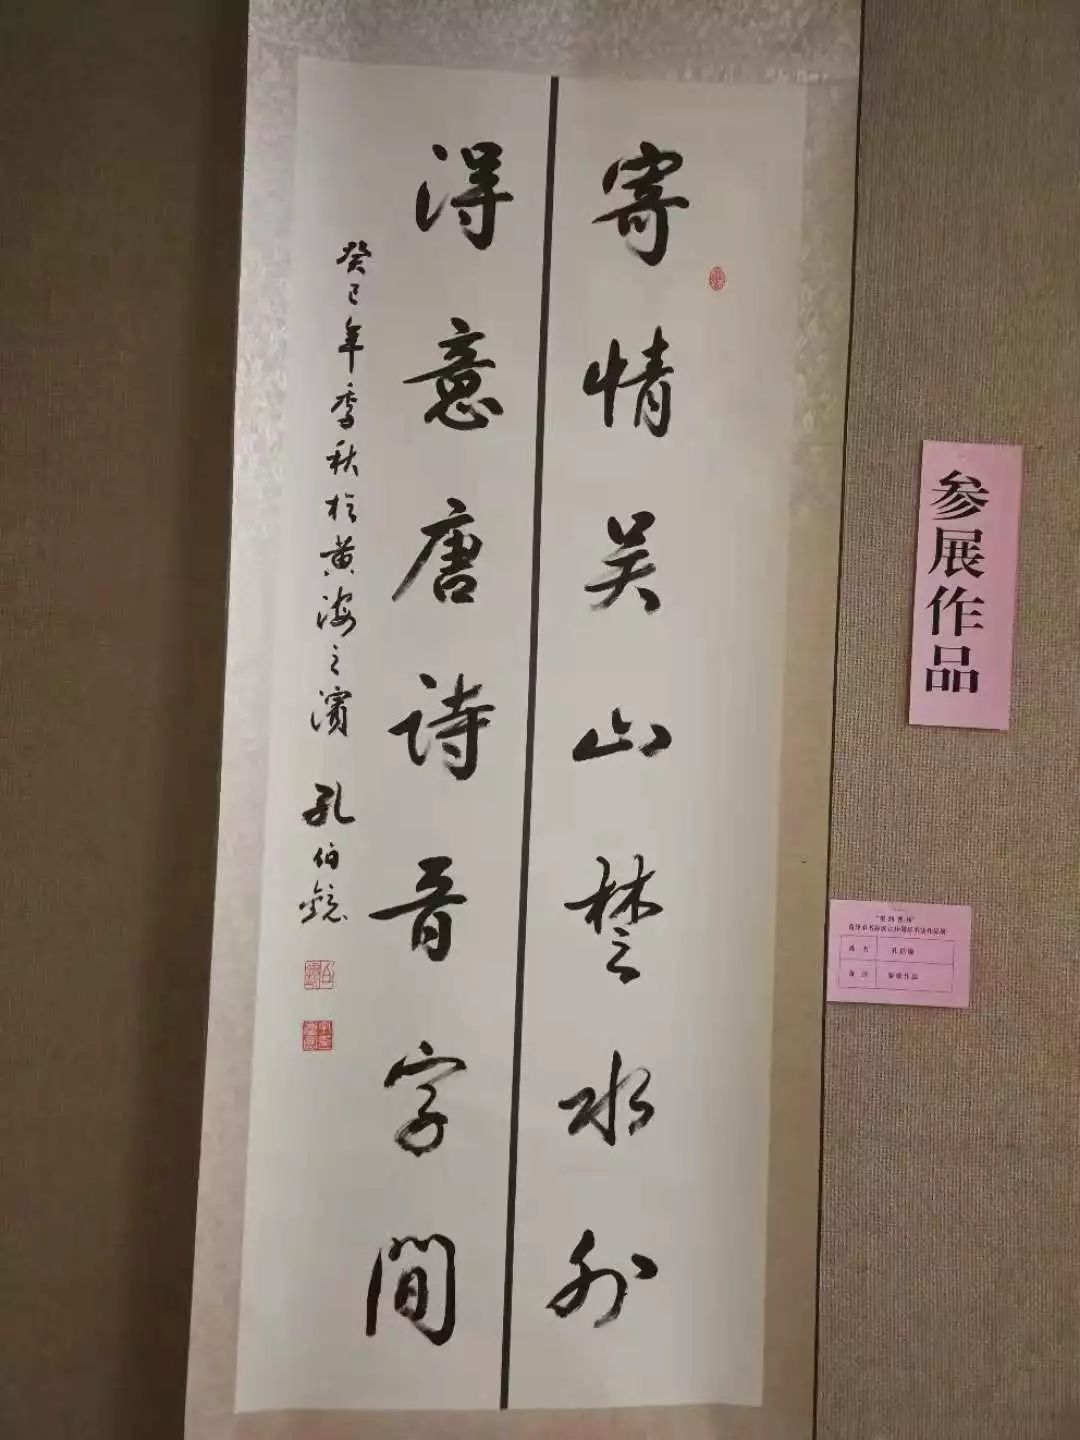 寄情吴山楚水外
得意唐诗音字間
癸巳年季秋於黄海之濱 孔伯鏡
参展作品
姓名
备注 参展作品